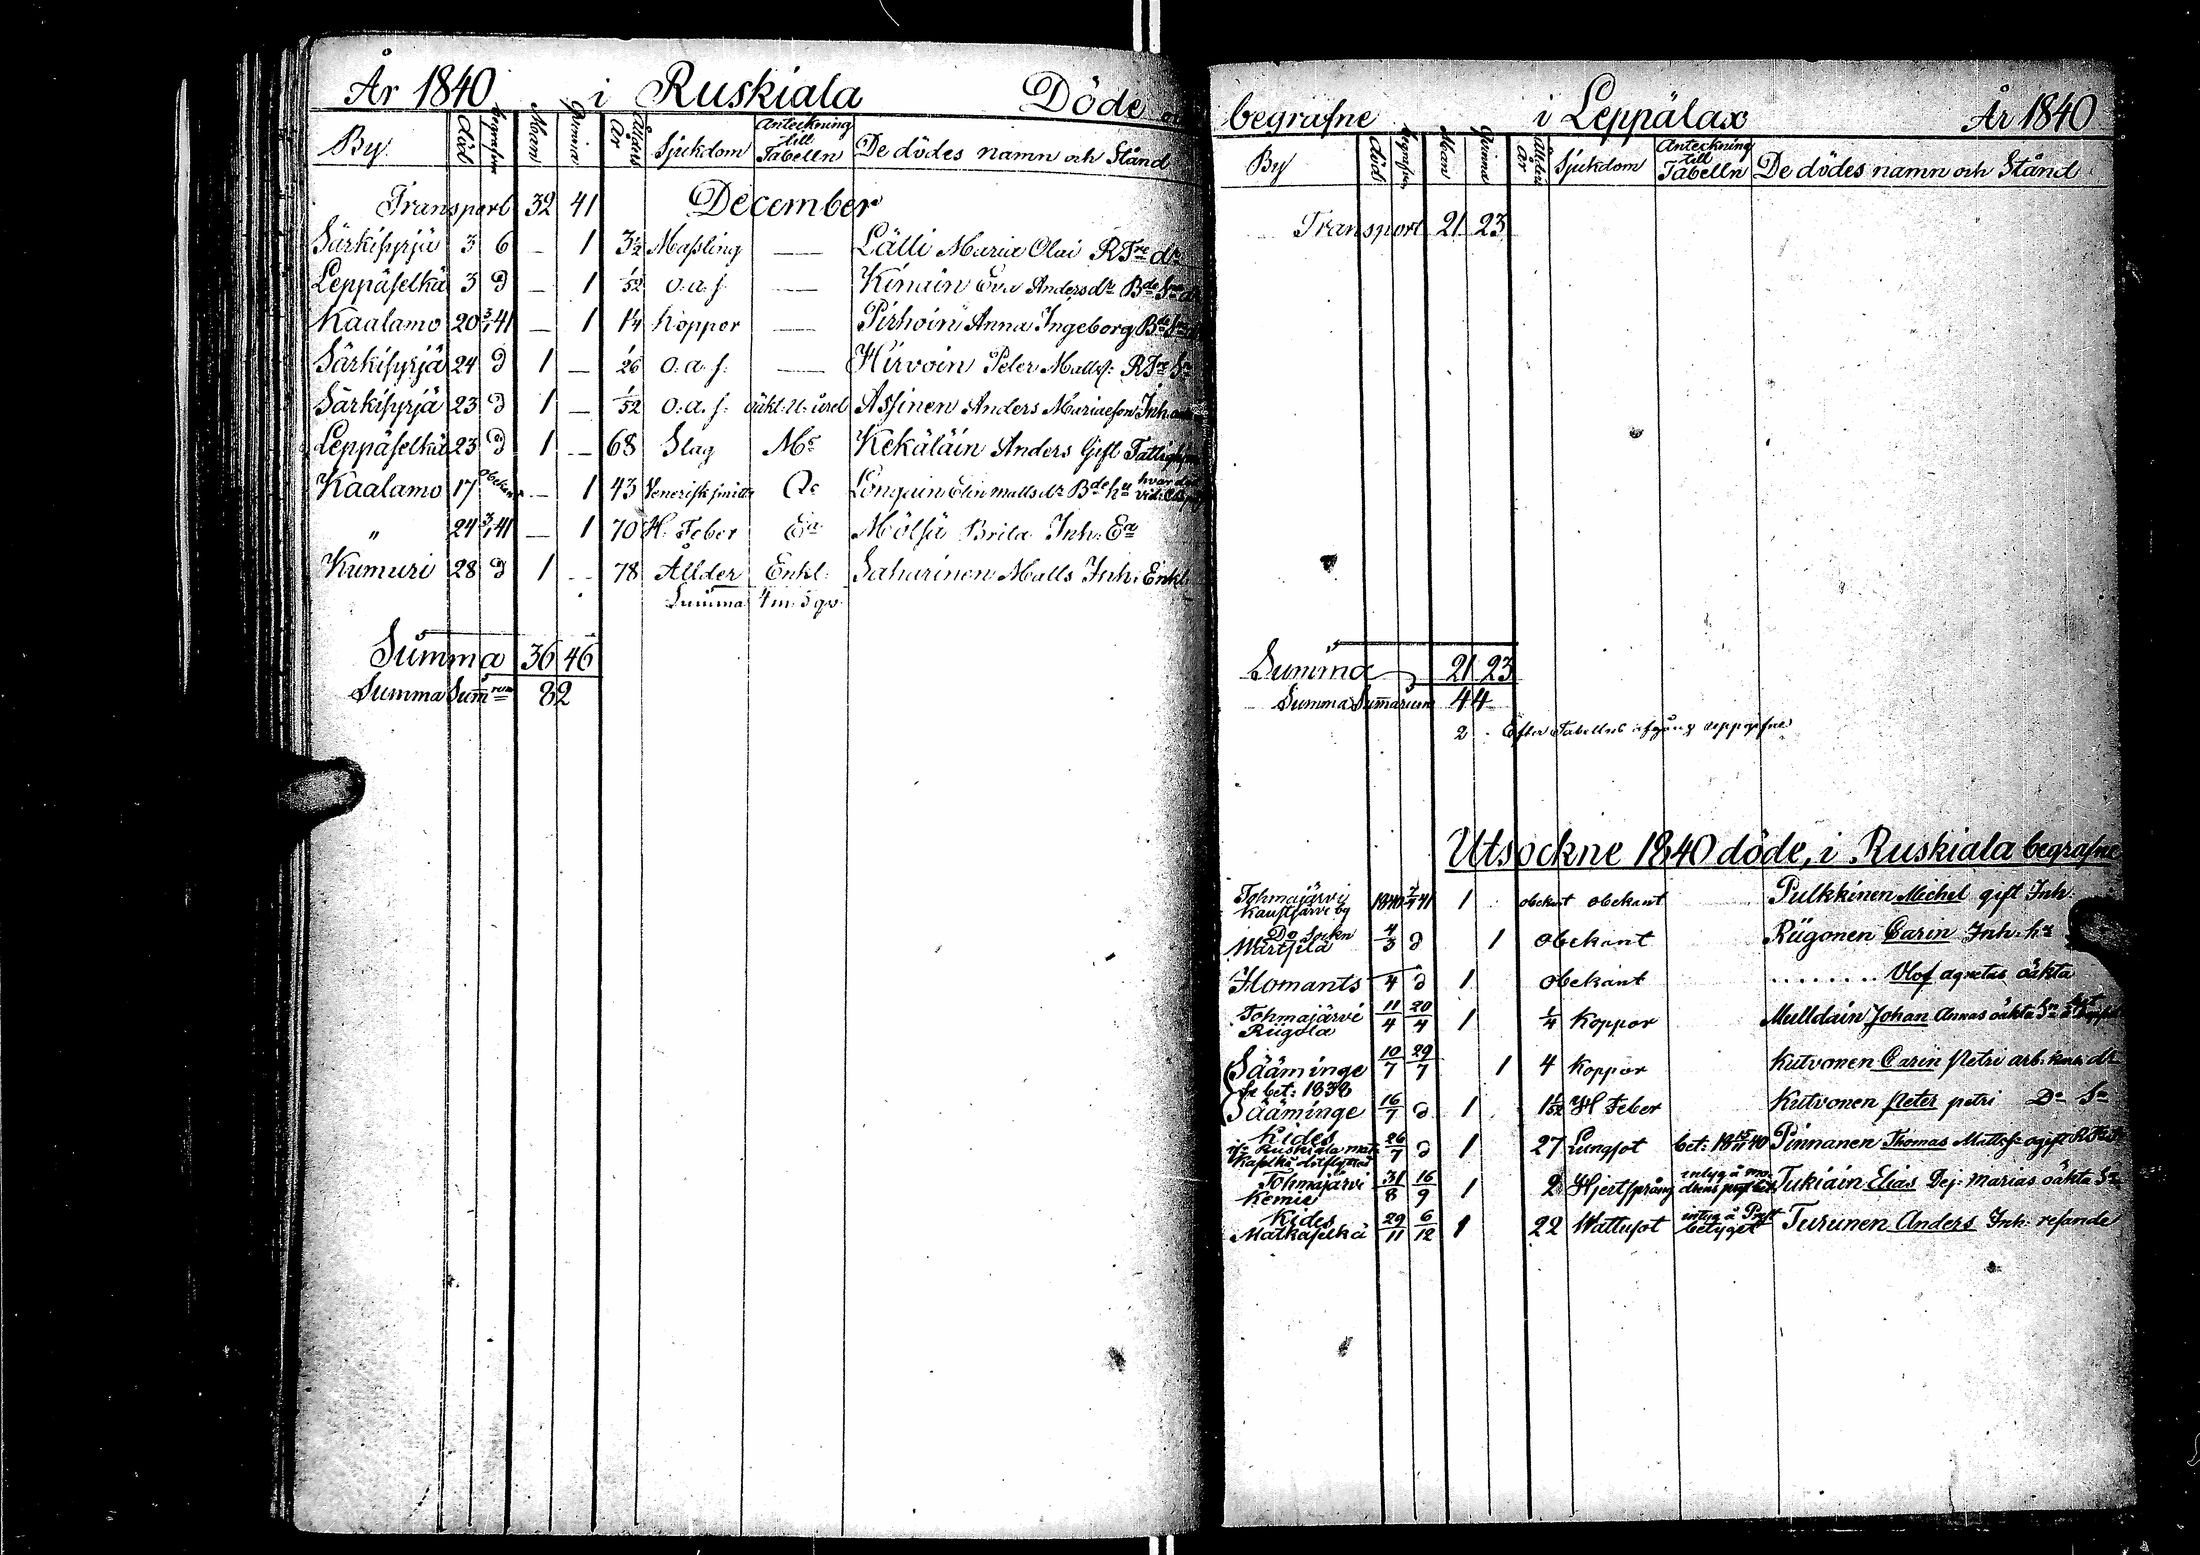 År 1840 i Ruskiala Döde
By. död begrafne Man Qvinna Ålder År Sjukdom Anteckning till Tabelln De dödes namn och Stånd
Transport 32 41 December
Särkisyrjä 3 6 — 1 3½ Massling — Lälli Maria Olai RTre dr
Leppäselkä 3 d — 1 1/52 o.a.s. — Kinäin Eva Andersdr Bde Sns d
Kaalamo 20 3/1 41 — 1 1¼ Koppor — Pirhoin Anna Ingeborg Bde
Särkisyrjä 24 d 1 — 1/26 o.a.s. — Hirvoin Peter Matts: RTre Sn
Särkisyrjä 23 d 1 — 1/52 o.a.s. Assinen Anders Mariaeson Inh
Leppäselkä 23 d 1 — 68 Slag Mr Kekäläin Anders Gift Fattighjon
Kaalamo 17 obekant — 1 43 Venerisk Qr Elin Mattsdr Bde hu
" 24 3/1 41 — 1 70 H. Feber Ea Mölsä Brita Inh: Ea
Kumuri 28 d 1 — 78 Ållder Enkl: Saharinen Matts Inh: Enkl:
Summa 4 m: 5 qv:
Summa 36 46
Summa Summrum 82
begrafne i Leppälax År 1840
By död begrafne Man Qvinna Ålder År Sjukdom Anteckning till Tabelln De dödes namn och Stånd
Transport 21 23
Summa 21 23
Summa Summarum 44
2 Efter Tabellns afgång
Utsockne 1840 döde, i Ruskiala begrafne
Tohmajärvi by 1840 41 1 obekant obekant Pulkkinen Michel gift Inh:
Do Sockn Wärtsilä 4/3 d 1 obekant Riigonen Carin Inh: hu
Ilomants 4 d 1 obekant ........ Olof agnetas oäkta
Tohmajärvi Riigola 11/4 20/4 1 ¼ Koppor Mulldain Johan Annas oäkta Sn
Sääminge 10/7 29/7 1 4 Koppor Kutvonen Carin petri arb: karls dr
se bet: 1838
Sääminge 16/7 d 1 1 1/52 H Feber Kutvonen peter petri Do Sn
Kides Ruskiala 26/7 d 1 27 Lungsot bet: 18 40 Pinnanen Thomas Mattss: ogift
Tohmajärvi Kemie 31/8 16/9 1 2 Hjertsprång intyg å Tukiäin Elias Pej: Marias oäkta Sn
Kides Matkaselkä 29/11 6/12 1 22 Wattusot intyg å Prest betyget Turunen Anders Inh: resande